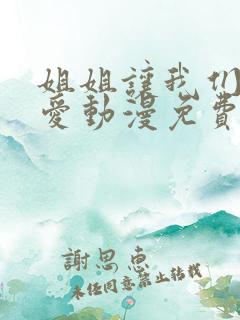 姐姐讓我们
愛動漫免費
謝思惠
未任同意禁止转载